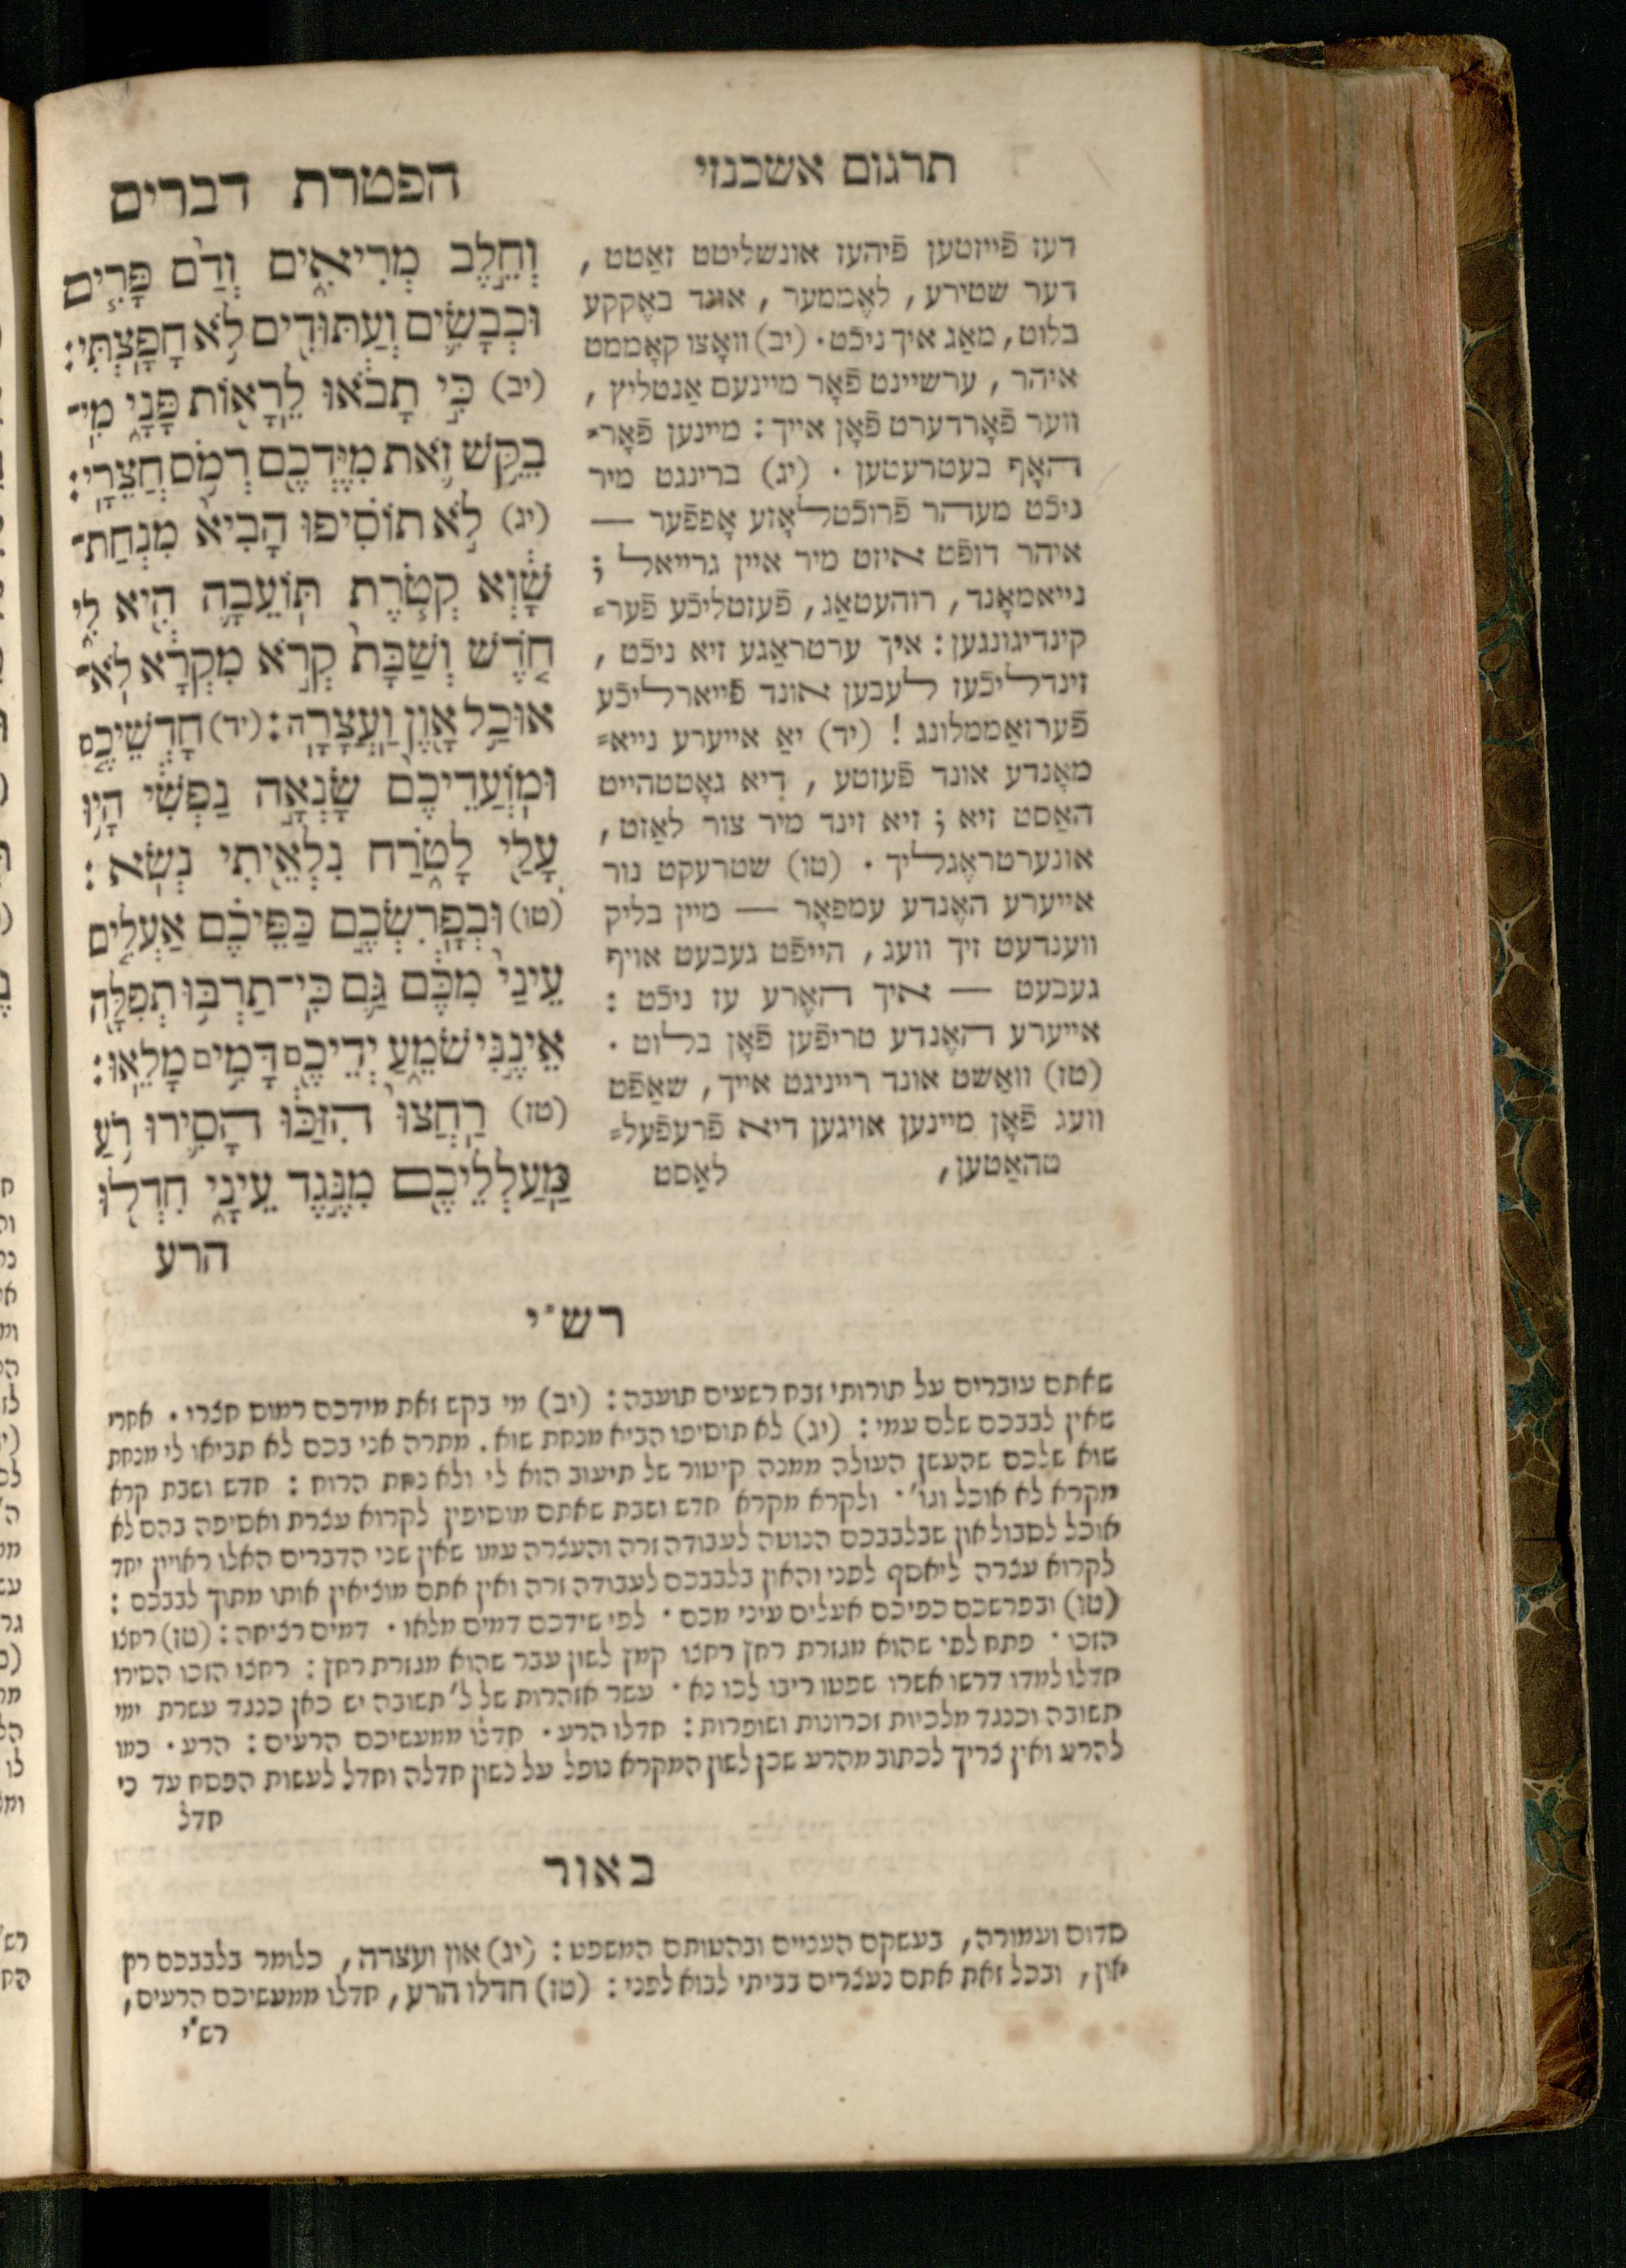 תרגום אשכנזי
דעז פֿייזטען פֿיהעז אונשליטט זאַטט,
דער שטירע, לאֶממער, אונד באֶקקע
בלוט, מאַג איך ניכֿט. (יב) וואָצו קאָממט
איהר, ערשיינט פֿאָר מיינעם אַנטליץ,
ווער פֿאָרדערט פֿאָן אייך: מיינען פֿאָר=
האָף בעטרעטען. (יג) ברינגט מיר
ניכֿט מעהר פֿרוכֿטלאָזע אָפפֿער —
איהר דופֿט איזט מיר איין גרייאל;
נייאמאָנד, רוהעטאַג, פֿעזטליכֿע פֿער=
קינדיגונגען: איך ערטראַגע זיא ניכֿט,
זינדליכֿעז לעבען אונד פֿייארליכֿע
פֿערזאַממלונג! (יד) יאַ אייערע נייא=
מאָנדע אונד פֿעזטע, דיא גאָטטהייט
האַסט זיא; זיא זינד מיר צור לאַזט,
אונערטראֶגליך. (טו) שטרעקט נור
אייערע האֶנדע עמפאָר — מיין בליק
ווענדעט זיך וועג, הייפֿט געבעט אויף
געבעט — איך האֶרע עז ניכֿט:
אייערע האֶנדע טריפֿען פֿאָן בלוט.
(טז) וואַשט אונד רייניגט אייך, שאַפֿט
וועג פֿאָן מיינען אויגען דיא פֿרעפֿעל=
טהאַטען, לאַסט
הפטרת דברים
וְחֵ֣לֶב מְרִיאִ֑ים וְדַ֨ם פָּרִ֧ים
וּכְבָשִׂ֛ים וְעַתּוּדִ֖ים לֹ֥א חָפָֽצְתִּי׃
(יב) כִּ֣י תָבֹ֔אוּ לֵרָא֖וֹת פָּנָ֑י מִֽי־
בִקֵּ֥שׁ זֹ֛את מִיֶּדְכֶ֖ם רְמֹ֥ס חֲצֵרָֽי׃
(יג) לֹ֣א תוֹסִ֗יפוּ הָבִיא֙ מִנְחַת־
שָׁ֔וְא קְטֹ֧רֶת תּוֹעֵבָ֛ה הִ֖יא לִ֑י
חֹ֤דֶשׁ וְשַׁבָּת֙ קְרֹ֣א מִקְרָ֔א לֹֽא־
אוּכַ֥ל אָ֖וֶן וַֽעֲצָרָֽה׃ (יד) חָדְשֵׁיכֶ֤ם
וּמֽוֹעֲדֵיכֶם֙ שָׂנְאָ֣ה נַפְשִׁ֔י הָי֥וּ
עָלַ֖י לָטֹ֑רַח נִלְאֵ֖יתִי נְשֹֽׂא׃
(טו) וּבְפָֽרִשְׂכֶ֣ם כַּפֵּיכֶ֗ם אַעְלִ֤ים
עֵינַי֙ מִכֶּ֔ם גַּ֛ם כִּֽי־תַרְבּ֥וּ תְפִלָּ֖ה
אֵינֶ֣נִּי שֹׁמֵ֑עַ יְדֵיכֶ֖ם דָּמִ֥ים מָלֵֽאוּ׃
(טז) רַֽחֲצוּ֙ הִזַּכּ֔וּ הָסִ֛ירוּ רֹ֥עַ
מַֽעַלְלֵיכֶ֖ם מִנֶּ֣גֶד עֵינָ֑י חִדְל֖וּ
הרע
רש״י
שאתם עוברים על תורותי זבח רשעים תועבה: (יב) מי בקש זאת מידכם רמוס חצרי. אחרי
שאין לבבכם שלם עמי: (יג) לא תוסיפו הביא מנחת שוא. מתרה אני בכם לא תביאו לי מנחת
שוא שלכם שהעשן העולה ממנה קיטור של תיעוב הוא לי ולא נחת הרוח: חדש ושבת קרא
מקרא לא אוכל וגו׳. ולקרא מקרא חדש ושבת שאתם מוסיפין לקרוא עצרת ואסיפה בהם לא
אוכל לסבול און שבלבבכם הנוטה לעבודה זרה והעצרה עמו שאין שני הדברים האלו ראויין יחד
לקרוא עצרה ליאסף לפני והאון בלבבכם לעבודה זרה ואין אתם מוציאין אותו מתוך לבבכם:
(טו) ובפרשכם כפיכם אעלים עיני מכם. לפי שידכם דמים מלאו. דמים רציחה: (טז) רחצו
הזכו. פתח לפי שהוא מגזרת רחץ רחצו קמץ לשון עבר שהוא מגזרת רחץ: רחצו הזכו הסירו
חדלו למדו דרשו אשרו שפטו ריבו לכו נא. עשר אזהרות של ל׳ תשובה יש כאן כנגד עשרת ימי
תשובה וכנגד מלכיות זכרונות ושופרות: חדלו הרע. חדלו ממעשיכם הרעים: הרע. כמו
להרע ואין צריך לכתוב מהרע שכן לשון המקרא נופל על לשון חדלה וחדל לעשות הפסח עד כי
חדל
באור
סדום ועמורה, בעשקם העניים ובהטותם המשפט: (יג) און ועצרה, כלומר בלבבכם רק
און, ובכל זאת אתם נעצרים בביתי לבוא לפני: (טז) חדלו הרע, חדלו ממעשיכם הרעים,
רש״י